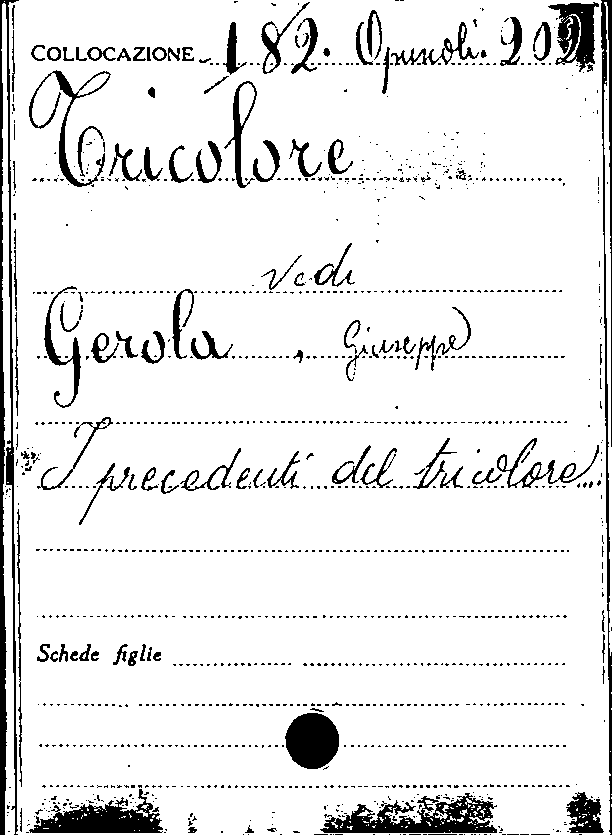 COLLOCAZIONE 182. Opuscoli. 202
Tricolore
vedi
Gerola, Giuseppe
I precedenti del tricolore...
Schede figlie